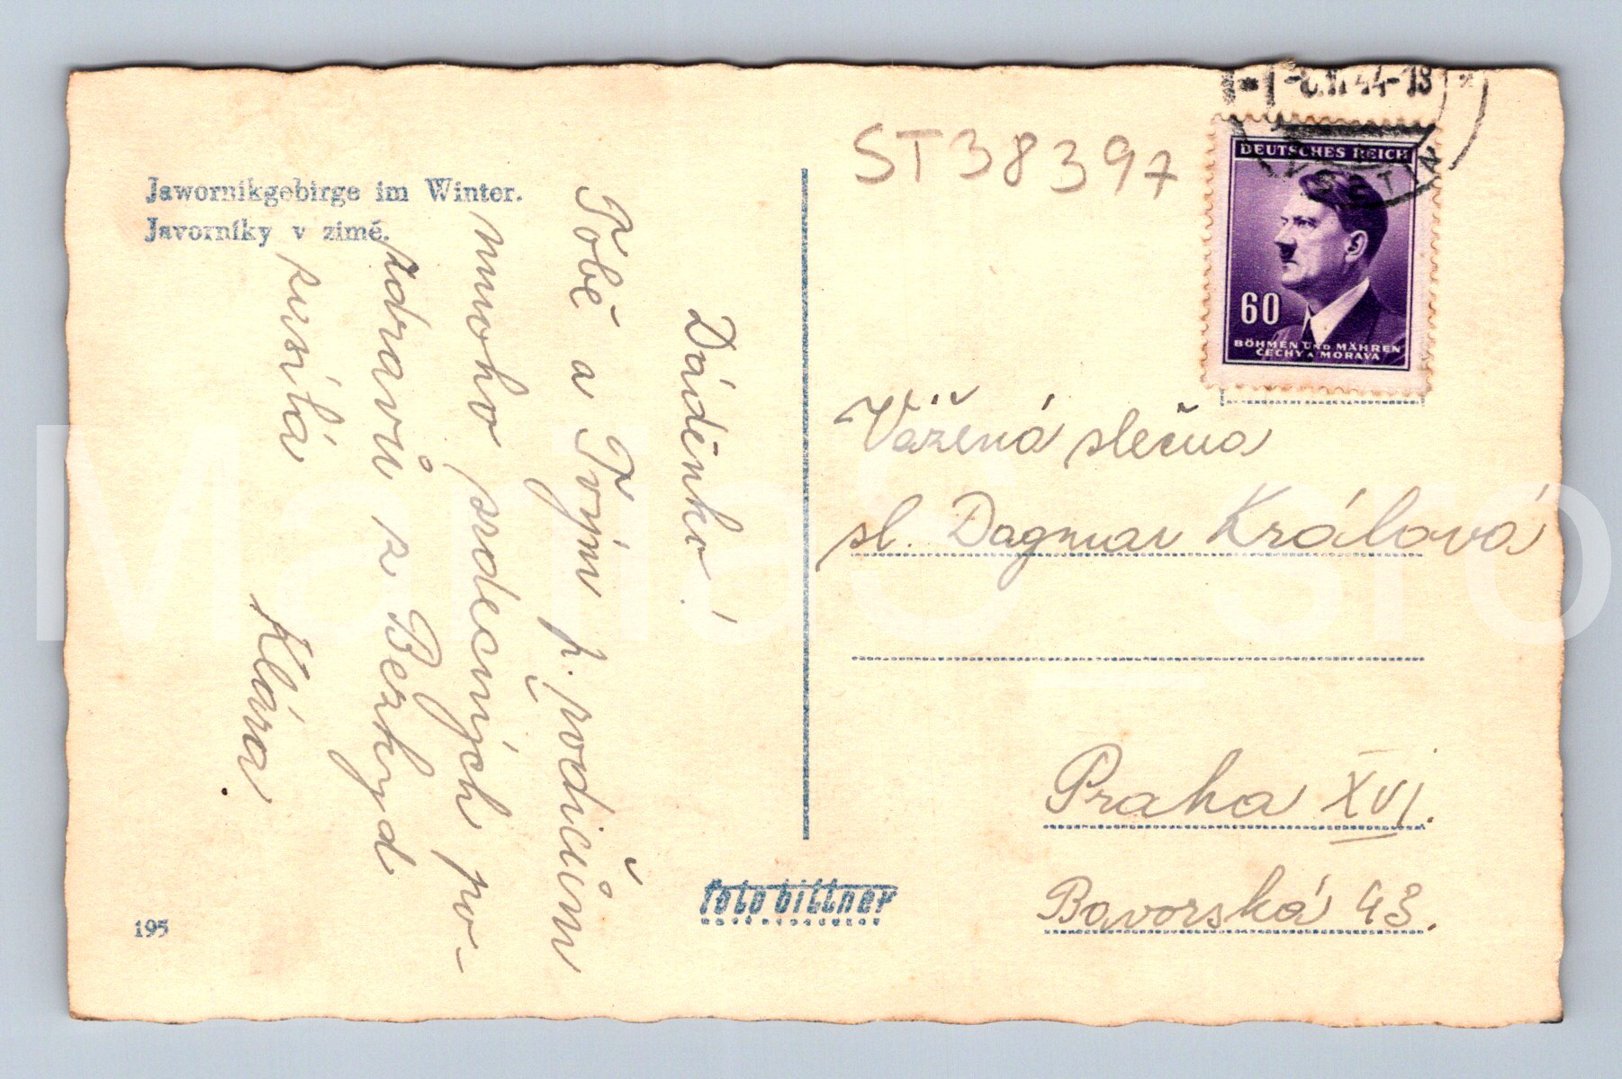 Jawornikgebirge im Winter.
Javorníky v zimě.
Dádénko!
Tobě a Tvým p. rodičům
mnoho srdečných po-
zdravů z Bezkyd
posílá
Klára
195
foto bittner
ST38397
44-18
VSETIN
DEUTSCHES REICH
60
BÖHMEN UND MÄHREN
ČECHY A MORAVA
Vážená slečna
sl. Dagmar Králová
Praha XVI.
Bavorská 43.